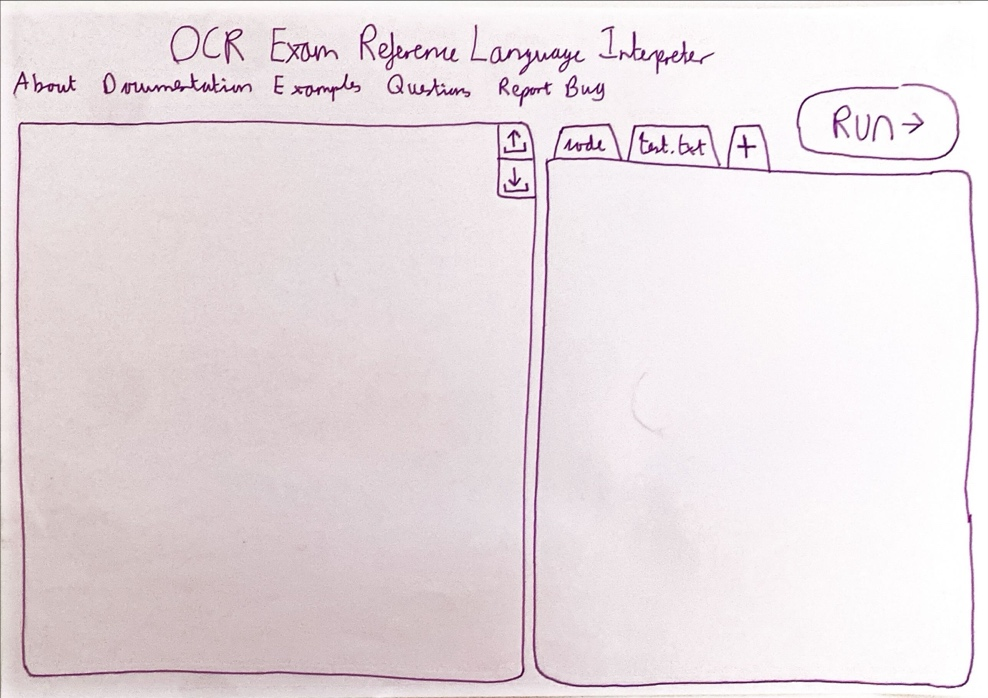 OCR Exam Reference Language Interpreter
About Documentation Examples Questions Report Bug
code test.txt + RUN→